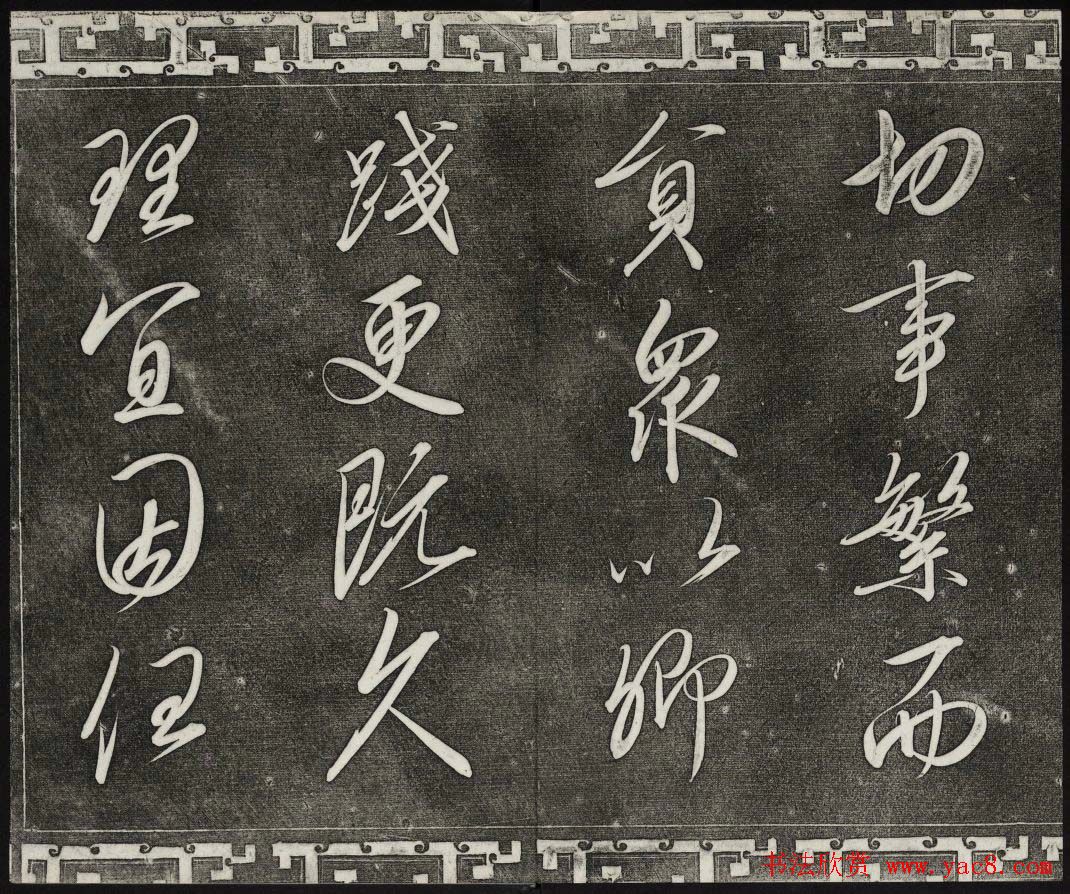 切事繁而
員衆以卿
踐更既久
理宜因任
书法欣赏 www.yac8.com